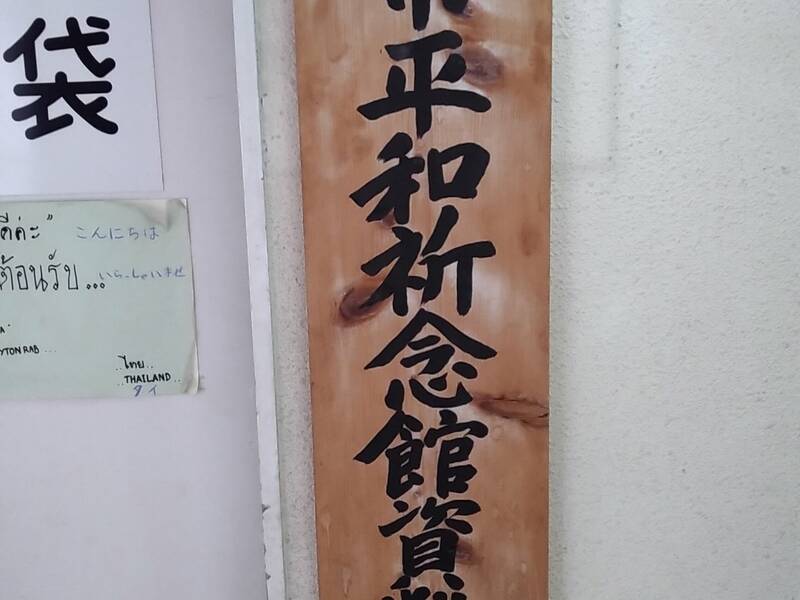 袋
ดีค่ะ" こんにちは
ต้อนรับ... いらっしゃいませ
YTONRAB...
..ไทย..
..THAILAND..
タイ
平和祈念館資